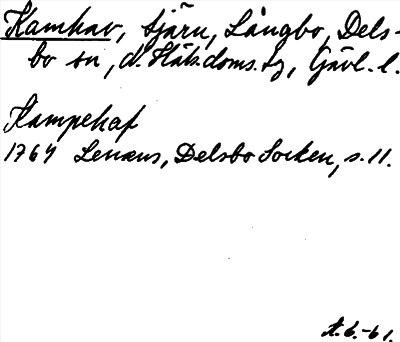 Kamhav, tjärn, Långbo, Dels-
bo sn, d. Häls. doms. tg, Gävl. l.
Kampehaf
1764 Lenæus, Delsbo Socken, s. 11.
A. b. -61.